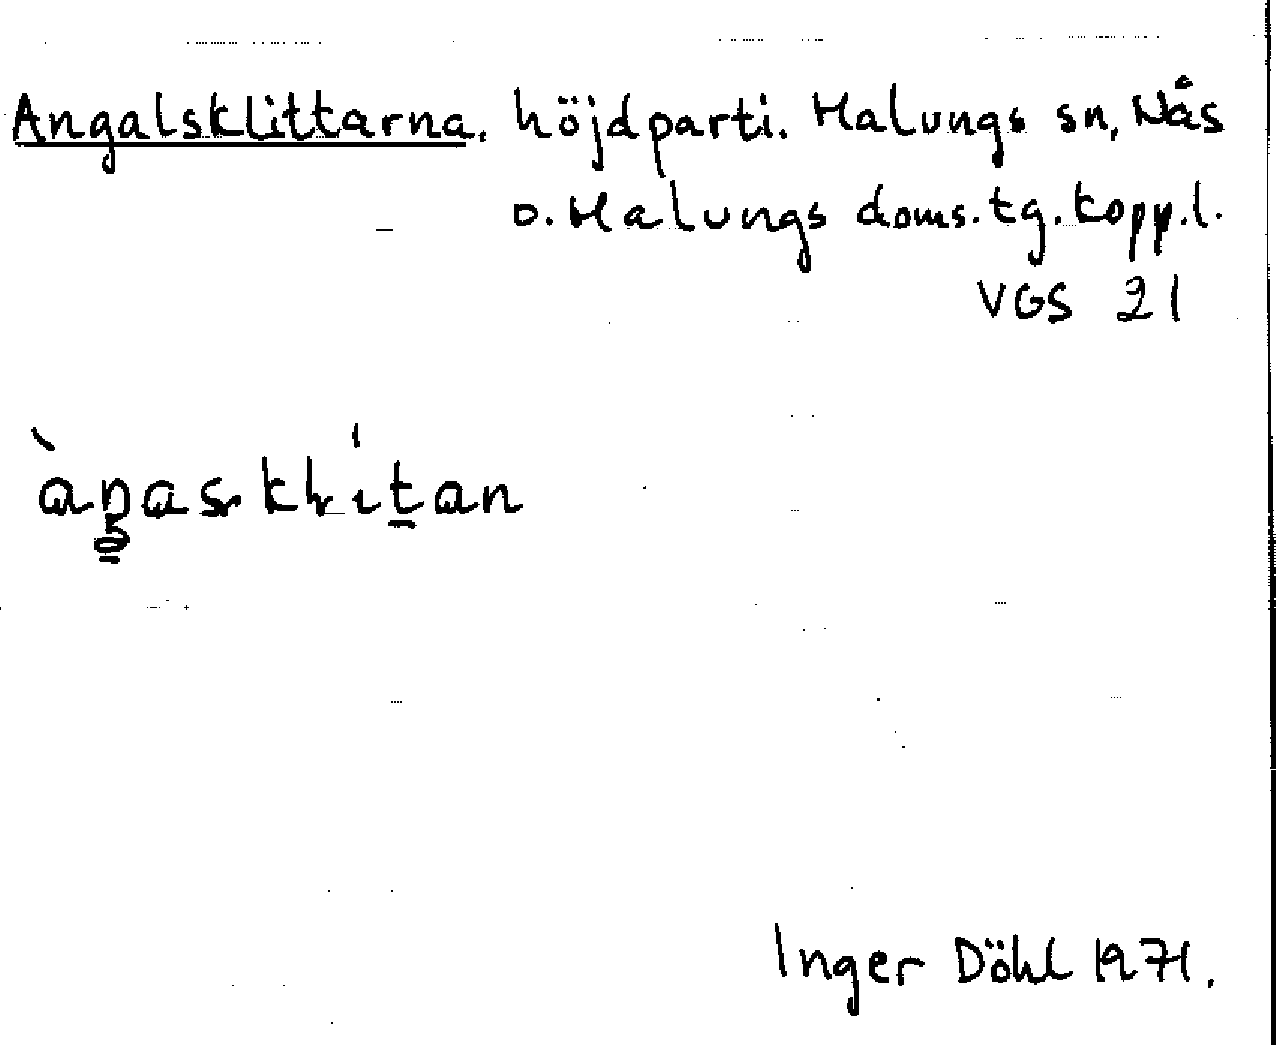 Angalsklittarna. höjdparti. Malungs sn, Nås
o. Malungs doms. tg. topp.l.
VGS 21
Inger Döhl 1971.